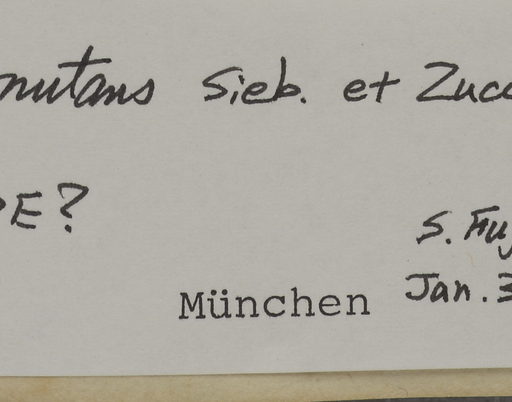 nutans Sieb. et Zucc
PE?
S. Fuj
München
Jan. 3